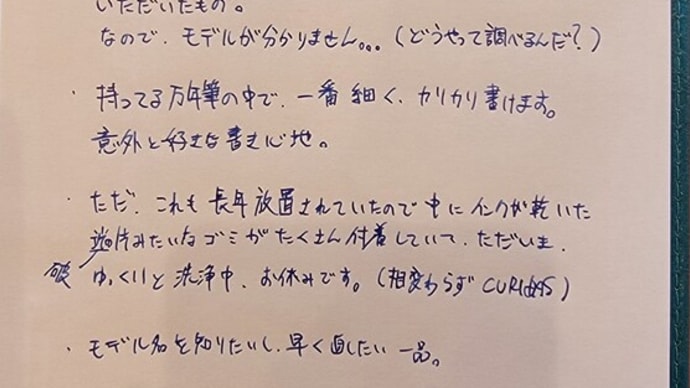 いただいたもの。
なので、モデルが分かりません。。。(どうやって調べるんだ?)
・持ってる万年筆の中で、一番細く、カリカリ書けます。
意外と好きな書き心地。
・ただ、これも長年放置されていたので中にインクが乾いた
破片みたいなゴミがたくさん付着していて、ただいま、
ゆっくりと洗浄中、お休みです。(相変わらず CURIDAS)
・モデル名を知りたいし、早く直したい一品。